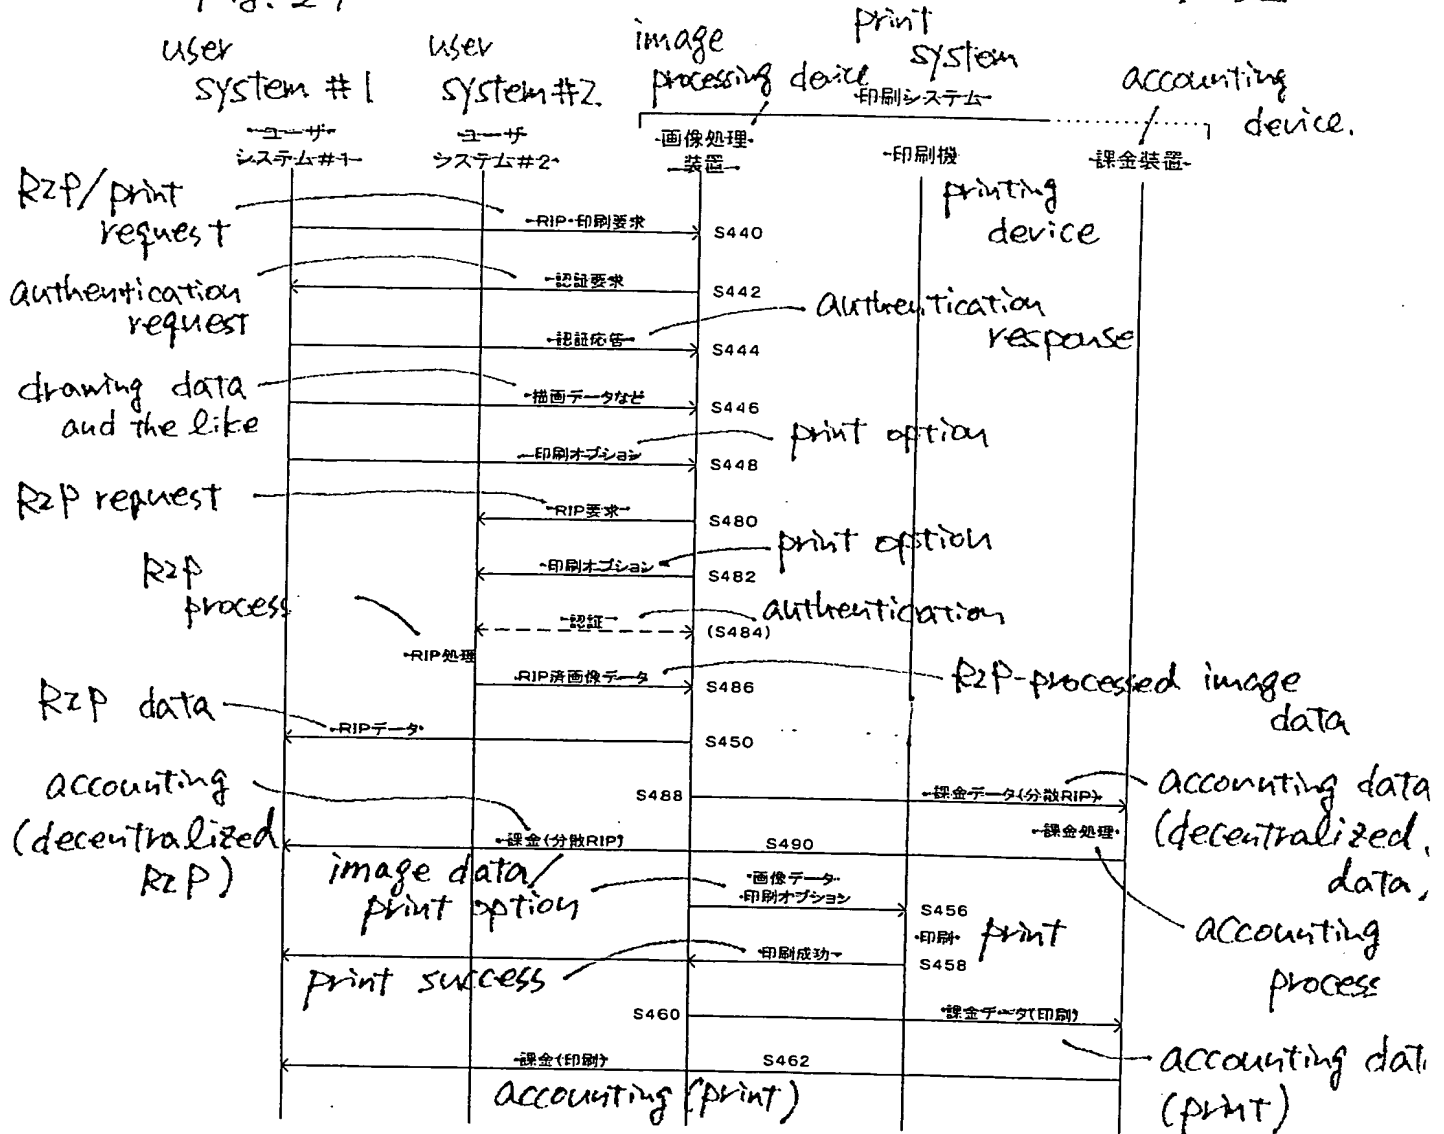 user
system #1
user
system #2.
image
processing device
print
system
accounting
device.
印刷システム
ユーザ
システム#1
ユーザ
システム#2
画像処理
装置
印刷機
課金装置
printing
device
RIP/print
request
RIP・印刷要求
S440
authentication
request
認証要求
S442
認証応答
S444
authentication
response
drawing data
and the like
描画データなど
S446
印刷オプション
S448
print option
RIP request
RIP要求
S480
印刷オプション
S482
print option
RIP
process
認証
(S484)
authentication
RIP処理
RIP済画像データ
S486
RIP-processed image
data
RIP data
RIPデータ
S450
accounting
(decentralized
RIP)
S488
課金データ(分散RIP)
accounting data
(decentralized.
data,
課金処理
課金(分散RIP)
S490
image data/
print option
画像データ
印刷オプション
S456
印刷
print
accounting
process
印刷成功
S458
print success
S460
課金データ(印刷)
accounting dat
(print)
課金(印刷)
S462
accounting (print)